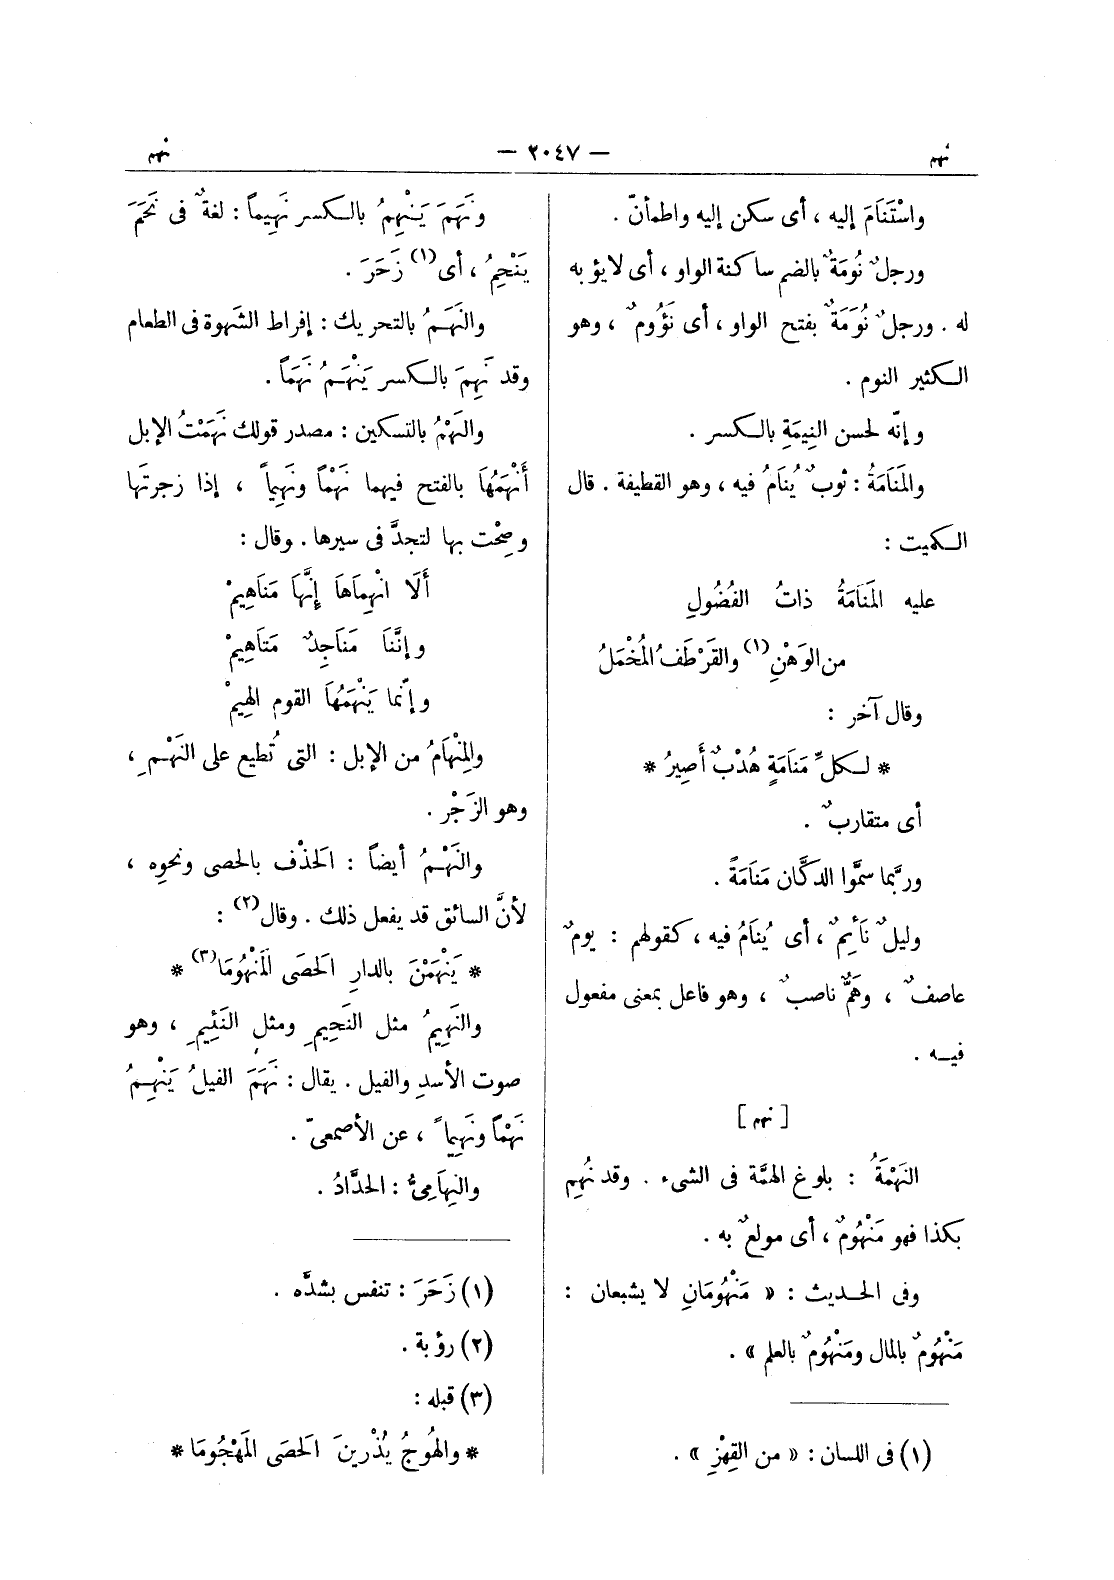 نهم
— ٢٠٤٧ —
نهم
واسْتَنَامَ إليه ، أى سكن إليه واطمأنّ .
ورجلٌ نُومَةٌ بالضم ساكنة الواو ، أى لايؤبه
له . ورجلٌ نُوَمَةٌ بفتح الواو ، أى نَؤُومٌ ، وهو
الكثير النوم .
وإنّه لحسن النِيمَةِ بالكسر .
والمَنَامَةُ : ثوبٌ يُنَامُ فيه ، وهو القطيفة . قال
الكميت :
عليه المَنَامَةُ ذاتُ الفُضُولِ
من الوَهْنِ (١) والقَرْطَفُ المُخْمَلُ
وقال آخر :
* لكلِّ مَنَامَةٍ هُدْبٌ أَصِيرُ *
أى متقاربٌ .
وربَّما سمَّوا الدكَّان مَنَامَةً .
وليلٌ نَائِمٌ ، أى يُنَامُ فيه ، كقولهم : يومٌ
عاصفٌ ، وهَمٌّ ناصبٌ ، وهو فاعل بمعنى مفعول
فيه .
[ نهم ]
النَهْمَةُ : بلوغ الهمَّة فى الشىء . وقد نُهِم
بكذا فهو مَنْهُومٌ ، أى مولعٌ به .
وفى الحديث : « مَنْهُومَانِ لا يشبعان :
مَنْهُومٌ بالمال ومَنْهُومٌ بالعلم » .
(١) فى اللسان : « من القِهْزِ » .
ونَهَمَ يَنْهِمُ بالكسر نَهِيماً : لغةٌ فى نَحَمَ
يَنْحِمُ ، أى (١) زَحَرَ .
والنَهَمُ بالتحريك : إفراط الشَهوة فى الطعام
وقد نَهِمَ بالكسر يَنْهَمُ نَهَمَاً .
والنَهْمُ بالتسكين : مصدر قولك نَهَمْتُ الإبل
أَنْهَمُهَا بالفتح فيهما نَهْمًا ونَهِيماً ، إذا زجرتَها
وصِحْت بها لتجدَّ فى سيرها . وقال :
أَلَا انْهِمَاهَا إِنَّهَا مَنَاهِيمْ
وإنَّنَا مَنَاجِدٌ مَتَاهِيمْ
وإنَّما يَنْهَمُهَا القوم الهِيمْ
والمِنْهَامُ من الإبل : التى تُطيع على النَهْمِ ،
وهو الزَجْر .
والنَهْمُ أيضاً : الحَذْف بالحصى ونحوِه ،
لأنَّ السائق قد يفعل ذلك . وقال (٢) :
* يَنْهَمْنَ بالدارِ الحَصَى المَنْهُومَا (٣) *
والنَهِيمُ مثل النَحِيمِ ومثل النَئِيمِ ، وهو
صوت الأسدِ والفيل . يقال : نَهَمَ الفيلُ يَنْهِمُ
نَهْمًا ونَهِيماً ، عن الأصمعىّ .
والنِهَامِىُّ : الحدَّادُ .
(١) زَحَرَ : تنفس بشدَّه .
(٢) رؤبة .
(٣) قبله :
* والهُوجُ يُذْرِينَ الحَصَى المَهْجُومَا *